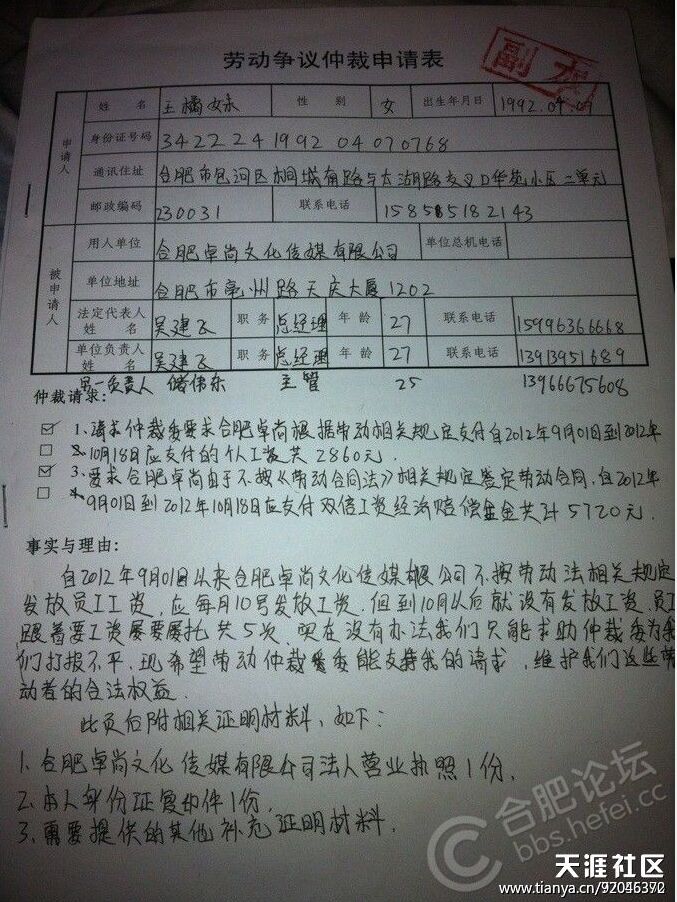 劳动争议仲裁申请表
副本
申请人
姓 名 王橘 性 别 女 出生年月日 1992.04.07
身份证号码 342224199204070768
通讯住址 合肥市包河区桐城南路与太湖路交叉口华苑小区二单元
邮政编码 230031 联系电话 15858518 2143
被申请人
用人单位 合肥卓尚文化传媒有限公司 单位总机电话
单位地址 合肥市亳州路天庆大厦1202
法定代表人姓 名 吴建飞 职 务 总经理 年 龄 27 联系电话 15996366668
单位负责人姓 名 吴建飞 职 务 总经理 年 龄 27 联系电话 13913951689
另一负责人 储伟东 主管 25 13966675608
仲裁请求:
1、请求仲裁委要求合肥卓尚根据劳动相关规定支付自2012年9月01日到2012年
10月18日应支付的个人工资共2860元.
3.要求合肥卓尚由于不按《劳动合同法》相关规定签定劳动合同.自2012年
9月01日到2012年10月18日应支付双倍工资经济赔偿金共计5720元.
事实与理由:
自2012年9月01日以来合肥卓尚文化传媒有限公司不按劳动法相关规定
发放员工工资,应每月10号发放工资.但到10月以后就没有发放工资.员工
跟着要工资屡要屡托共5次.实在没有办法我们只能求助仲裁委为我
们打报不平.现希望劳动仲裁委能支持我的请求,维护我们这些劳
动者的合法权益.
此页后附相关证明材料、如下:
1.合肥卓尚文化传媒有限公司法人营业执照1份.
2.本人身份证复印件1份.
3.需要提供的其他补充证明材料.
合肥论坛
bbs.hefei.cc
天涯社区
www.tianya.cn/92046392